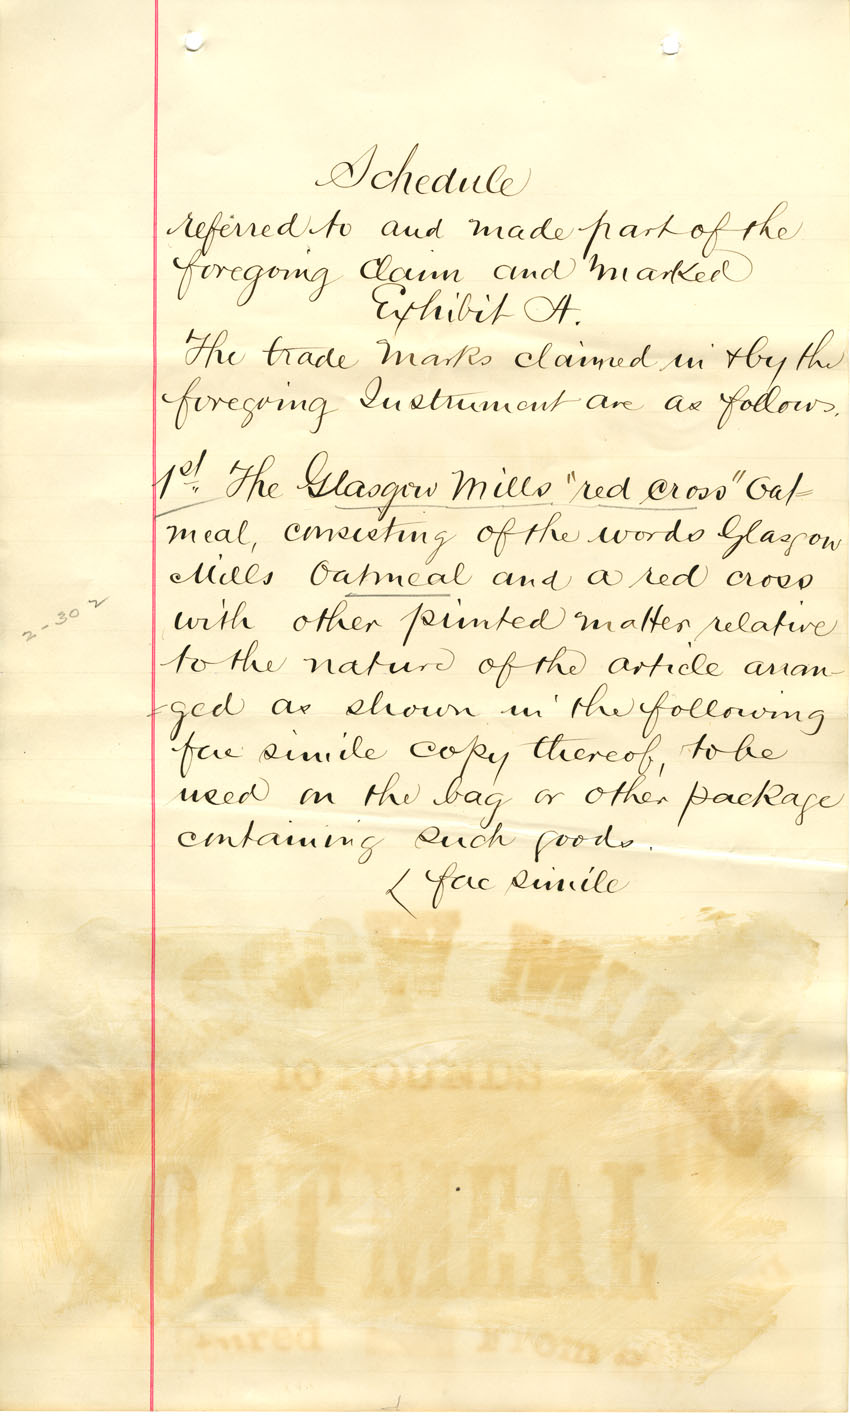 Schedule
referred to and made part of the
foregoing claim and marked
Exhibit A.
The trade marks claimed in & by the
foregoing Instrument are as follows.
1st. The Glasgow Mills "red cross" Oat-
meal, consisting of the words Glasgow
Mills Oatmeal and a red cross
with other printed matter relative
to the nature of the article arran-
-ged as shown in the following
fac simile copy thereof, to be
used on the bag or other package
containing such goods.
fac simile
2-302
10 POUNDS
OAT MEAL
From